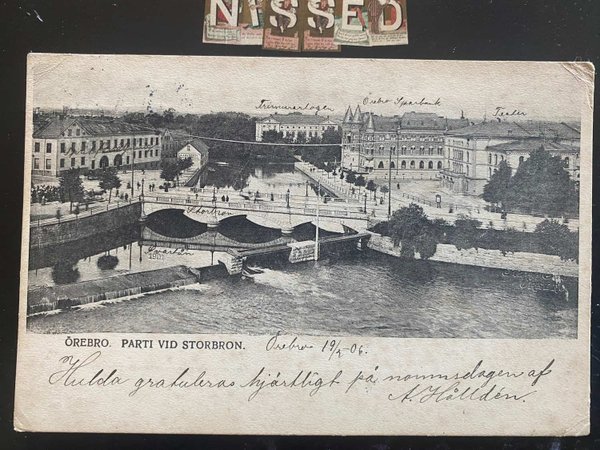 NISSED
Frimurarlogen
Örebro Sparbank
Teater
Storbron
ÖREBRO. PARTI VID STORBRON.
Örebro 19/2 06.
Hulda gratuleras hjärtligt på namnsdagen af
A. Hålldén.